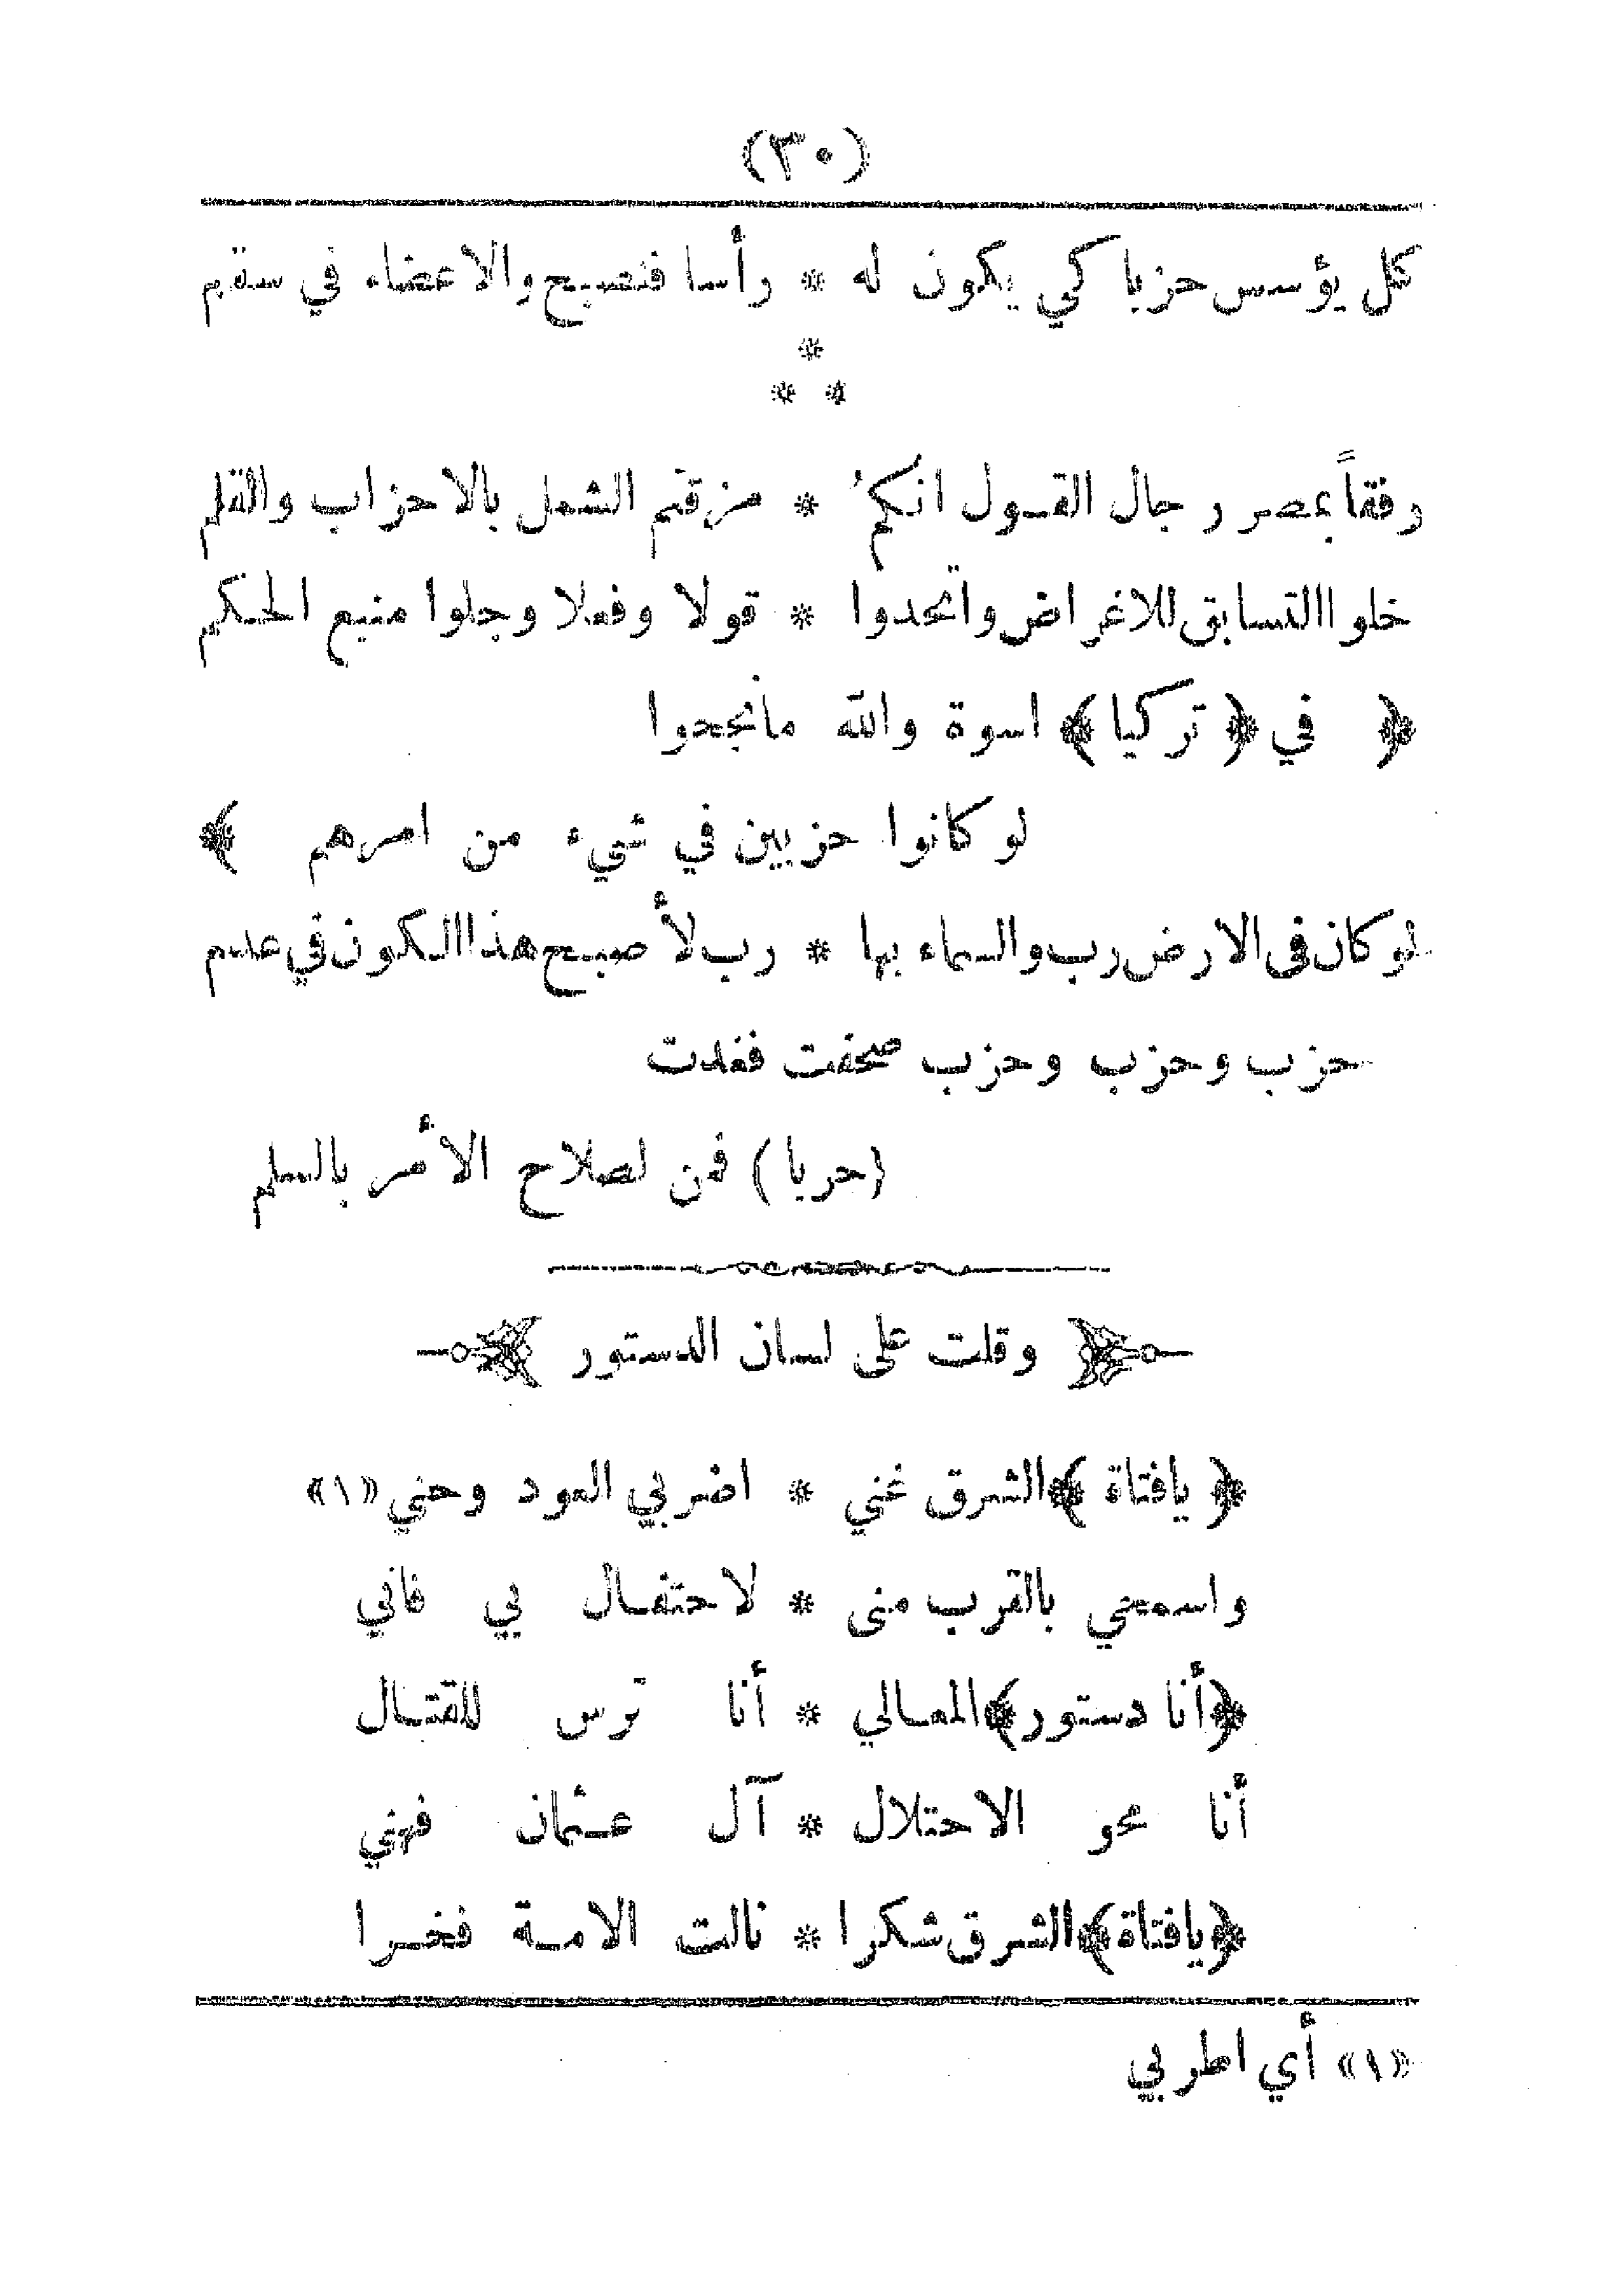 (٣٠)
كل يؤسس حزبا كي يكون له * رأسا فتصبح والاعضاء في سقم
*
* *
رفقاً بمصر رجال القول انكمُ * مزقتم الشمل بالاحزاب والقلم
خلوا التسابق للاغراض واتحدوا * قولا وفعلا وجلوا منبع الحكم
﴿ في ﴿ تركيا ﴾ اسوة والله مانجحوا
لو كانوا حزبين في شيء من امرهم ﴾
لو كان فى الارض رب والسماء بها * رب لأصبح هذا الكون في عدم
حزب وحزب وحزب صحفت فغدت
(حربا) فمن لصلاح الأمر بالسلم
﴿ وقلت على لسان الدستور ﴾
﴿ يافتاة ﴾ الشرق غني * اضربي العود وحني «١»
واسمعي بالقرب منى * لاحتفال بي فاني
﴿أنا دستور﴾ المعالي * أنا ترس للقتال
أنا محو الاحتلال * آل عثمان فهني
﴿يافتاة﴾ الشرق شكرا * نالت الامة فخرا
«١» أي اطربي